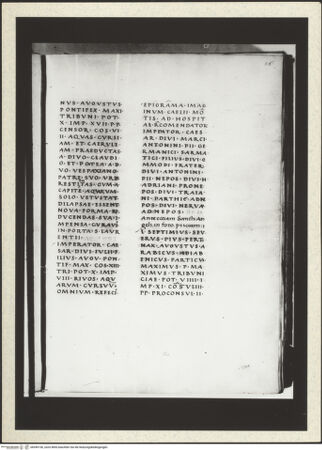 NVS · AVGVSTVS
PONTIFEX · MAXI
TRIBVNI · POT
X · IMP · XVII · P·P·
CENSOR · COS · VI
II · AQVAS · CVRTI
AM · ET · CAERVLE
AM · PERDVCTAS
A · DIVO · CLAVDI
O · ET · POSTEA · A · D
VO · VESPASIANO
PATRE · SVO · VRB
RESTITVTAS · CVM · A
CAPITE · AQVARVM ·
SOLO · VETVSTAT
DILAPSAE · ESSENT
NOVA · FORMA · R
DVCENDAS · SVA · I
IMPENSA · CVRAVIT
IN · PORTA · S · LAVR
ENTII ·
IMPERATOR · CAE
SAR · DIVI · IVLII · F
ILIVS · AVGV · PON
TIF · MAX · COS · XII
TRI · POT · X · IMP ·
VIII · RIVOS · AQV
ARVM · CVRAVIT
OMNIVM · REFECI
EPIGRAMA · IMAG
AD · HOSPIT
IMPERATOR · CAES
AR · DIVI · MARCI
ANTONINI · PII · GE
RMANICI · SARMA
TICI · FILIVS · DIVI · C
OMMODI · FRATER
DIVI · ANTONINI
PII · NEPOS · DIVI · H
ADRIANI · PRONE
POS · DIVI · TRAIA
NI · PARTHIC · ADN
POS · DIVI · NERVAE
ADNEPOS ·
L · SEPTIMIVS · SEV
ERVS · PIVS · PERT
NAX · AVGVSTVS · A
RABICVS · ADIAB
ENICVS · PARTICVS
MAXIMVS · P · MA
XIMVS · TRIBVNI
CIAE · POT · VIIII · I
MP · XI · COS · VIIII
PP · PROCONSVL · II ·